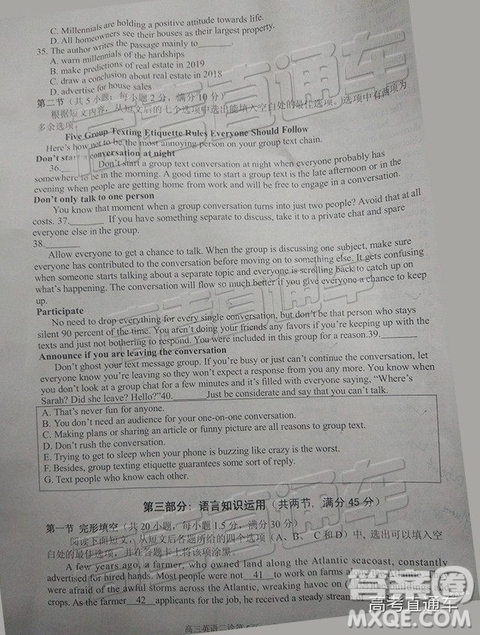 C. Millennials are holding a positive attitude towards life.
D. All homeowners see their houses as their largest property.
35. The author writes the passage mainly to______
A. warn millennials of the hardships
B. make predictions of real estate in 2019
C. draw a conclusion about real estate in 2018
D. advertise for house sales
第二节 (共5小题; 每小题2分, 满分10分)
根据短文内容, 从短文后的七个选项中选出能填入空白处的最佳选项。选项中有两项为
多余选项。
Five Group Texting Etiquette Rules Everyone Should Follow
Here's how not to be the most annoying person on your group text chain.
Don't start a conversation at night
36.______ Don't start a group text conversation at night when everyone probably has
somewhere to be in the morning. A good time to start a group text is the late afternoon or in the
evening when people are getting home from work and will be free to engage in a conversation.
Don't only talk to one person
You know that moment when a group conversation turns into just two people? Avoid that at all
costs. 37.______ If you have something separate to discuss, take it to a private chat and spare
everyone else in the group.
38.______
Allow everyone to get a chance to talk. When the group is discussing one subject, make sure
everyone has contributed to the conversation before moving on to something else. It gets confusing
when someone starts talking about a separate topic and everyone is scrolling back to catch up on
what's happening. The conversation will flow so much better if you give everyone a chance to
talk.
Participate
No need to drop everything for every single conversation, but don't be that person who stays
silent 90 percent of the time. You aren't doing your friends any favors if you're keeping up with the
texts and just not bothering to respond. You were included in this group for a reason.39.______
Announce if you are leaving the conversation
Don't ghost your text message group. If you're busy or just can't continue the conversation, let
everyone know you're leaving so they won't expect a response from you any more. You know when
you don't look at a group chat for a few minutes and it's filled with everyone saying, "Where's
Sarah? Did she leave? Hello?"40.______ Just be considerate and say that you can't talk.
A. That's never fun for anyone.
B. You don't need an audience for your one-on-one conversation.
C. Making plans or sharing an article or funny picture are all good reasons to start.
D. Don't rush the conversation.
E. Trying to get to sleep when your phone is buzzing like crazy is the worst.
F. Besides, group texting etiquette guarantees some sort of reply.
G. Text people other people who know each other.
第三部分: 语言知识运用 (共两节, 满分45分)
第一节 完形填空 (共20小题, 每小题1.5分, 满分30分)
阅读下面短文, 从短文后各题所给的四个选项 (A、B、C和D) 中, 选出可以填入空
白处的最佳选项, 并在答题卡上将该项涂黑。
A few years ago, a farmer, who owned land along the Atlantic seacoast, constantly
advertised for hired hands. Most people were not __41__ to work on farms
were afraid of the awful storms across the Atlantic, wreaking havoc on
crops. As the farmer __42__ applicants for the job, he received a steady stream
高三英语二诊第
高考直通车
答案圈
高考直通车